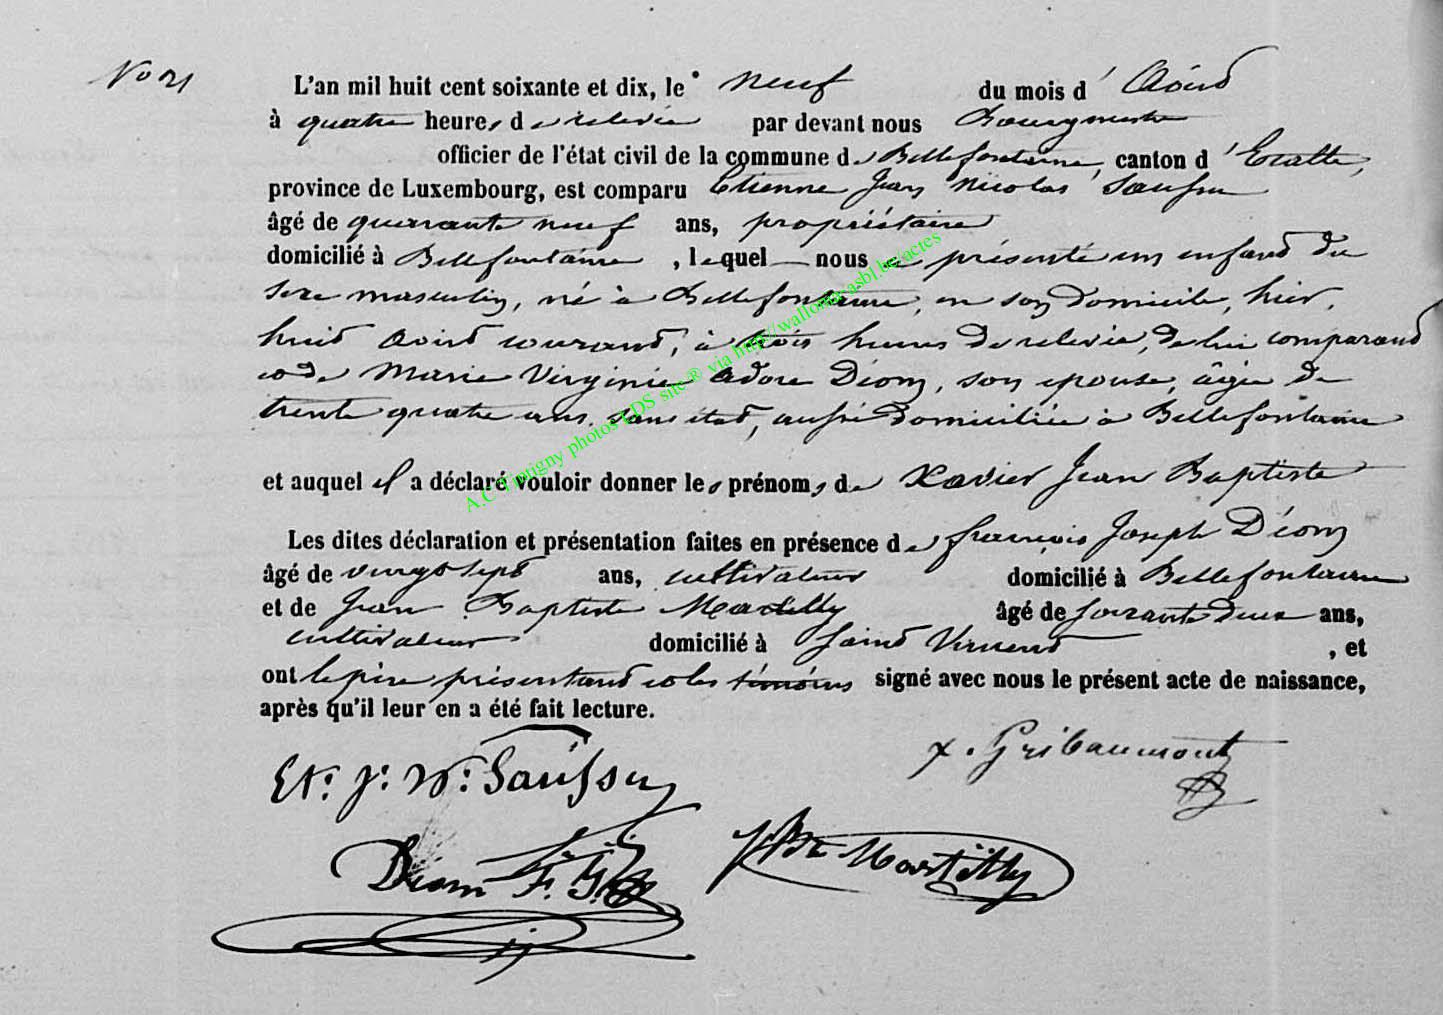 No 21
L'an mil huit cent soixante et dix, le neuf du mois d' Août
à quatre heures de relevée par devant nous Bourgmestre
officier de l'état civil de la commune de Bellefontaine, canton d' Etalle,
province de Luxembourg, est comparu Etienne Jean Nicolas Saussu
âgé de quarante neuf ans, propriétaire
domicilié à Bellefontaine, lequel nous a présenté un enfant du
sexe masculin, né à Bellefontaine, en son domicile, hier,
huit Août courant, à trois heures de relevée, de lui comparant
et de Marie Virginie Adore Déom, son épouse, âgée de
trente quatre ans, sans état, aussi domiciliée à Bellefontaine
et auquel il a déclaré vouloir donner les prénoms de Xavier Jean Baptiste
Les dites déclaration et présentation faites en présence de françois Joseph Déom
âgé de vingt sept ans, cultivateur domicilié à Bellefontaine
et de Jean Baptiste Martilly âgé de soixante deux ans,
cultivateur domicilié à Saint Vincent, et
ont le père présentant et les témoins signé avec nous le présent acte de naissance,
après qu'il leur en a été fait lecture.
Et. J. N. Saussu
x. Gribaumont
Déom F. J.
JBte Martilly
A.C Tintigny photos LDS site ® via http://wallonia-asbl.be/actes